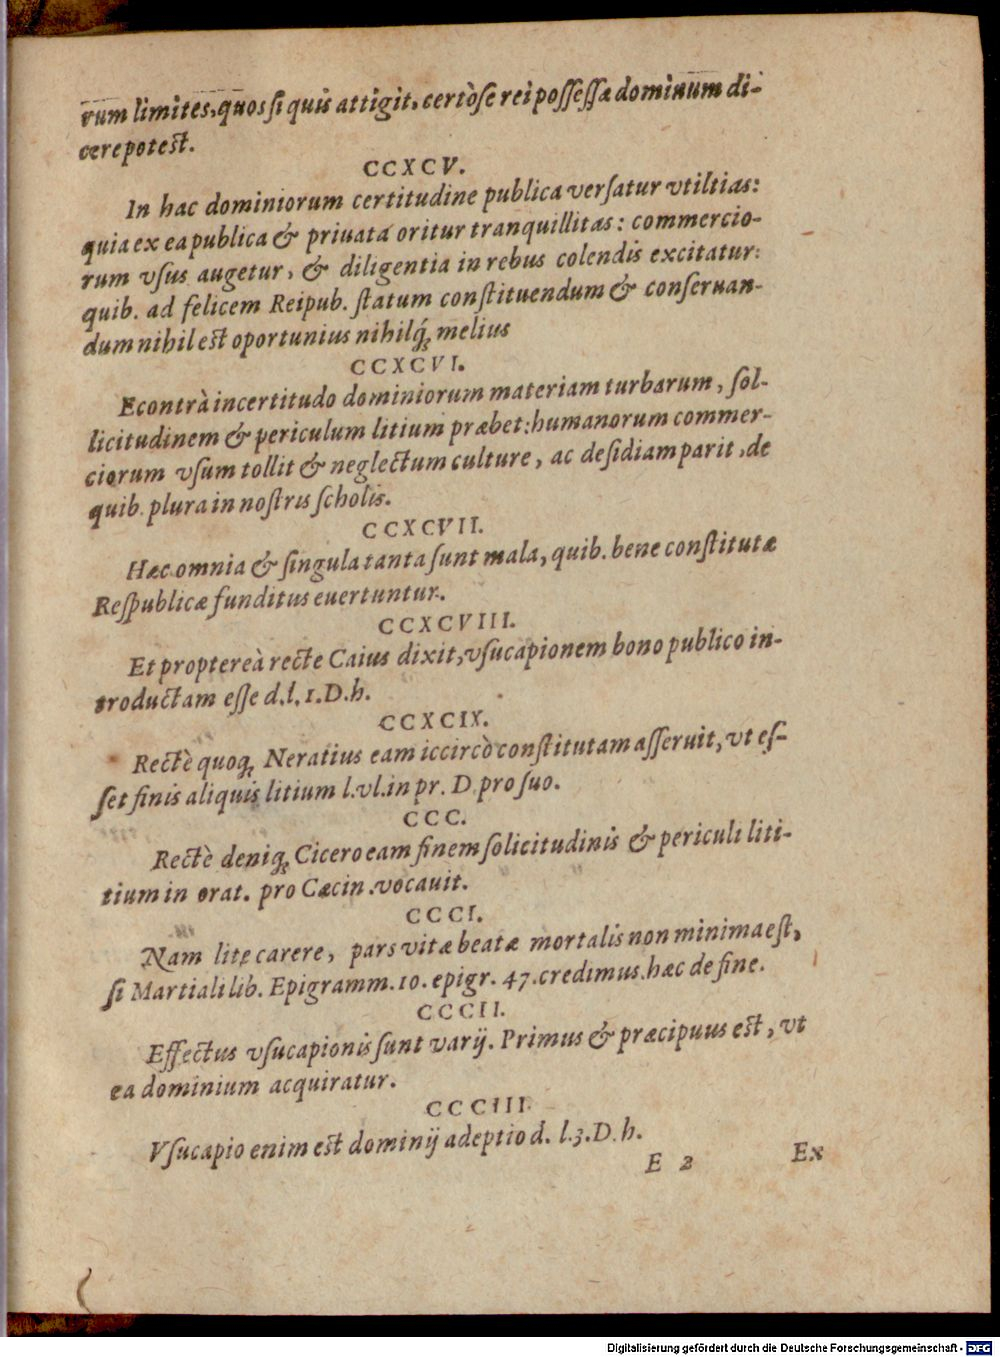 rum limites, quos si quis attigit, certò se rei possessæ dominum di-
cere potest.
CCXCV.
In hac dominiorum certitudine publica versatur vtiltias:
quia ex ea publica & priuata oritur tranquillitas: commercio-
rum vsus augetur, & diligentia in rebus colendis excitatur:
quib. ad felicem Reipub. statum constituendum & conseruan-
dum nihil est oportunius nihilq́; melius
CCXCVI.
Econtrà incertitudo dominiorum materiam turbarum, sol-
licitudinem & periculum litium præbet: humanorum commer-
ciorum vsum tollit & neglectum culture, ac desidiam parit, de
quib. plura in nostris scholis.
CCXCVII.
Hæc omnia & singula tanta sunt mala, quib. bene constitutæ
Respublicæ funditus euertuntur.
CCXCVIII.
Et proptereà recte Caius dixit, vsucapionem bono publico in-
troductam esse d.l. 1. D. h.
CCXCIX.
Rectè quoq; Neratius eam iccircò constitutam asseruit, vt es-
set finis aliquis litium l. vl. in pr. D pro suo.
CCC.
Rectè deniq; Cicero eam finem solicitudinis & periculi liti-
tium in orat. pro Cæcin. vocauit.
CCCI.
Nam lite carere, pars vitæ beatæ mortalis non minima est,
si Martiali lib. Epigramm. 10. epigr. 47. credimus. hæc de fine.
CCCII.
Effectus vsucapionis sunt varij. Primus & præcipuus est, vt
ea dominium acquiratur.
CCCIII.
Vsucapio enim est dominij adeptio d. l. 3. D. h.
E 2 Ex
Digitalisierung gefördert durch die Deutsche Forschungsgemeinschaft - DFG